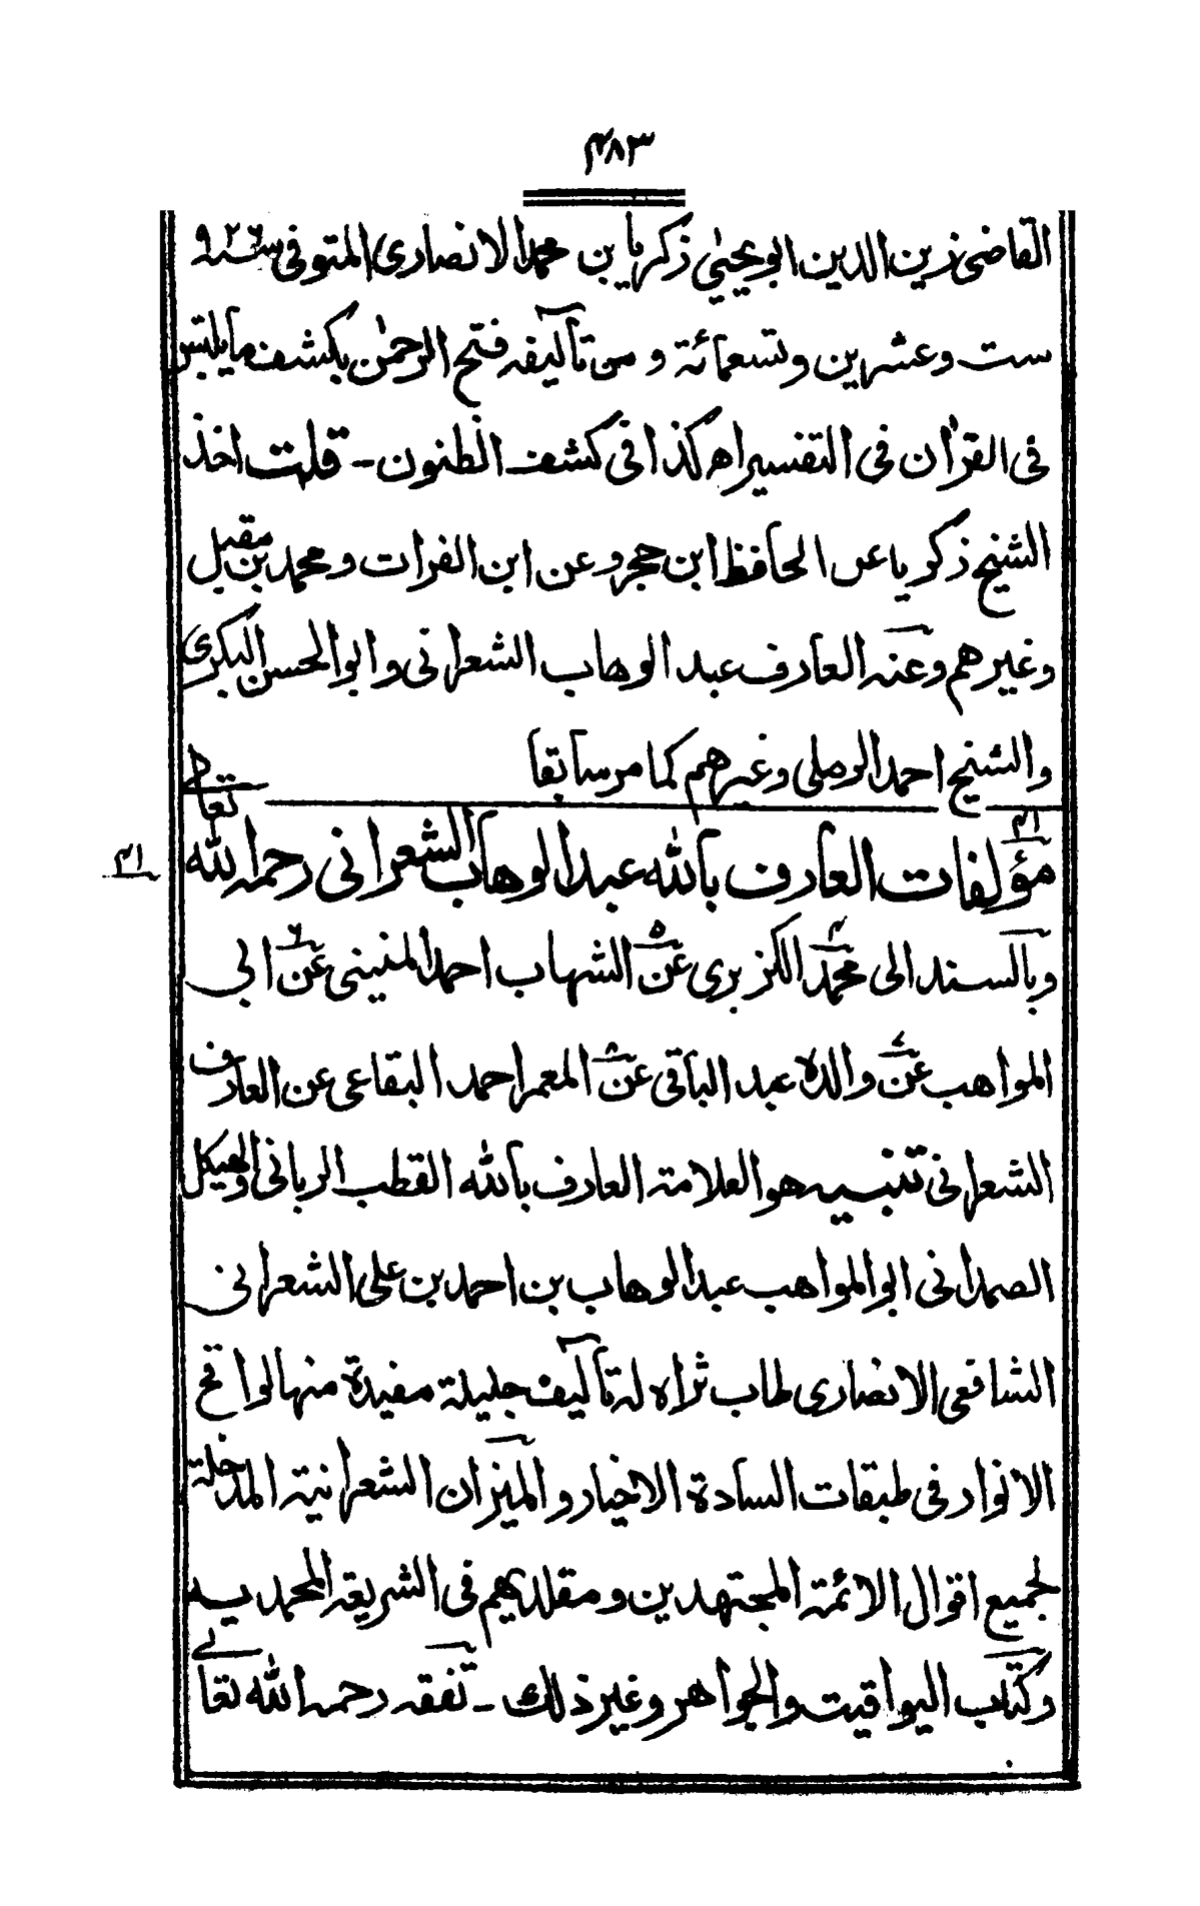 ۴۸۳
القاضی زین الدین ابو یحیٰی زکریا بن محمد الانصاری المتوفی سنۃ ۹۲۶
ست وعشرین وتسعمائۃ و من تآلیفہ فتح الرحمٰن بکشف مایلتبس
فی القرٰان فی التفسیر اھ کذا فی کشف الظنون - قلت اخذ
الشیخ زکریا عن الحافظ ابن حجر وعن ابن الفرات و محمد بن مقبل
وغیرھم وعنہ العارف عبد الوھاب الشعرانی وابوالحسن البکری
والشیخ احمد الرملی وغیرھم کما مر سابقا
۴۱ مؤلفات العارف بآللہ عبد الوھاب الشعرانی رحمہ اللہ تعالٰے ۴۱
وبآلسند الی محمد۴ الکزبری عن۵ الشہاب احمد المنینی عن۶ ابی
المواھب عن۷ والدہ عبد الباقی عن۸ المعمر احمد البقاعی عن العارف
الشعرانی تنبیہ ھو العلامۃ العارف بآللہ القطب الربانی والھیکل
الصمدانی ابو المواھب عبد الوھاب بن احمد بن علی الشعرانی
الشافعی الانصاری طاب ثراہ لہ تآلیف جلیلۃ مفیدۃ منہا لواقح
الانوار فی طبقات السادۃ الاخیار و المیزان الشعرانیۃ المدخلۃ
لجمیع اقوال الائمۃ المجتھدین و مقلدیھم فی الشریعۃ المحمدیہ
وکتاب الیواقیت والجواھر وغیر ذلک - تفقہ رحمہ اللہ تعالٰے